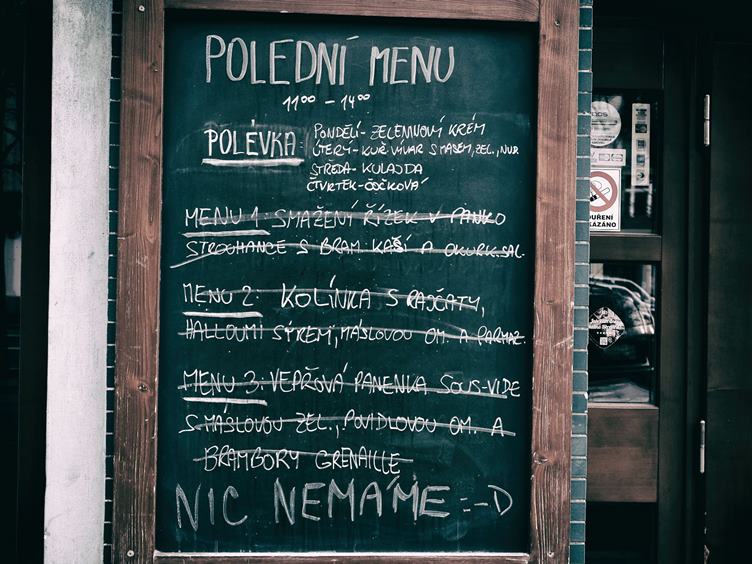 POLEDNÍ MENU
11⁰⁰ – 14⁰⁰
POLÉVKA: PONDĚLÍ - ZELENINOVÝ KRÉM
ÚTERÝ - KUŘ. VÝVAR S MASEM, ZEL., NUD.
STŘEDA - KULAJDA
ČTVRTEK - ČOČKOVÁ
MENU 1: SMAŽENÍ ŘÍZEK V PANKO
STROUHANCE S BRAM. KAŠÍ A OKURK. SAL.
MENU 2: KOLÍNKA S RAJČATY,
HALLOUMI SÝREM, MÁSLOVOU OM. A PARMAZ.
MENU 3: VEPŘOVÁ PANENKA SOUS-VIDE
S MÁSLOVOU ZEL., POVIDLOVOU OM. A
BRAMBORY GRENAILLE
NIC NEMÁME :-D
OUŘENÍ
KÁZÁNO